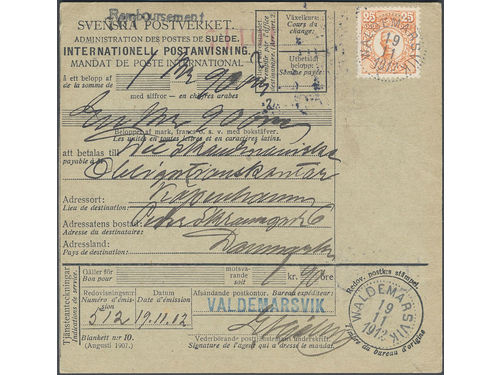 Remboursement
SVENSKA POSTVERKET.
ADMINISTRATION DES POSTES DE SUÈDE.
INTERNATIONELL POSTANVISNING.
MANDAT DE POSTE INTERNATIONAL
Växelkurs:
Cours du change:
Utbetaldt belopp:
Somme payée:
25 25
à ett belopp af
de la somme de
1 Kr 90 öre
med siffror — en chiffres arabes
90 öre
Beloppet af mark, francs o. s. v. med bokstäfver.
Les unités en toutes lettres et en caractères latins.
att betalas till
payable à
Skandinaviske
Obligationskontor
Adressort:
Lieu de destination:
Kjøbenhavn
Adressatens bostad:
Rue de destination:
Adressland:
Pays de destination:
Danmark
Tjänsteanteckningar
Indications de service.
Gäller för
Bon pour
motsvarande
soit
kr.
Redovisningsnr
Numéro d'émission
Datum
Date d'émission
Afsändande postkontor. Bureau expéditeur:
VALDEMARSVIK
512 19.11.12
Blankett nr 10.
(Augusti 1907.)
Vederbörande postfunktionärs underskrift:
Signature de l'agent qui a dressé le mandat.
Redov. postkts stämpel.
VALDEMARSVIK
19
11
1912
Timbre du bureau d'origine